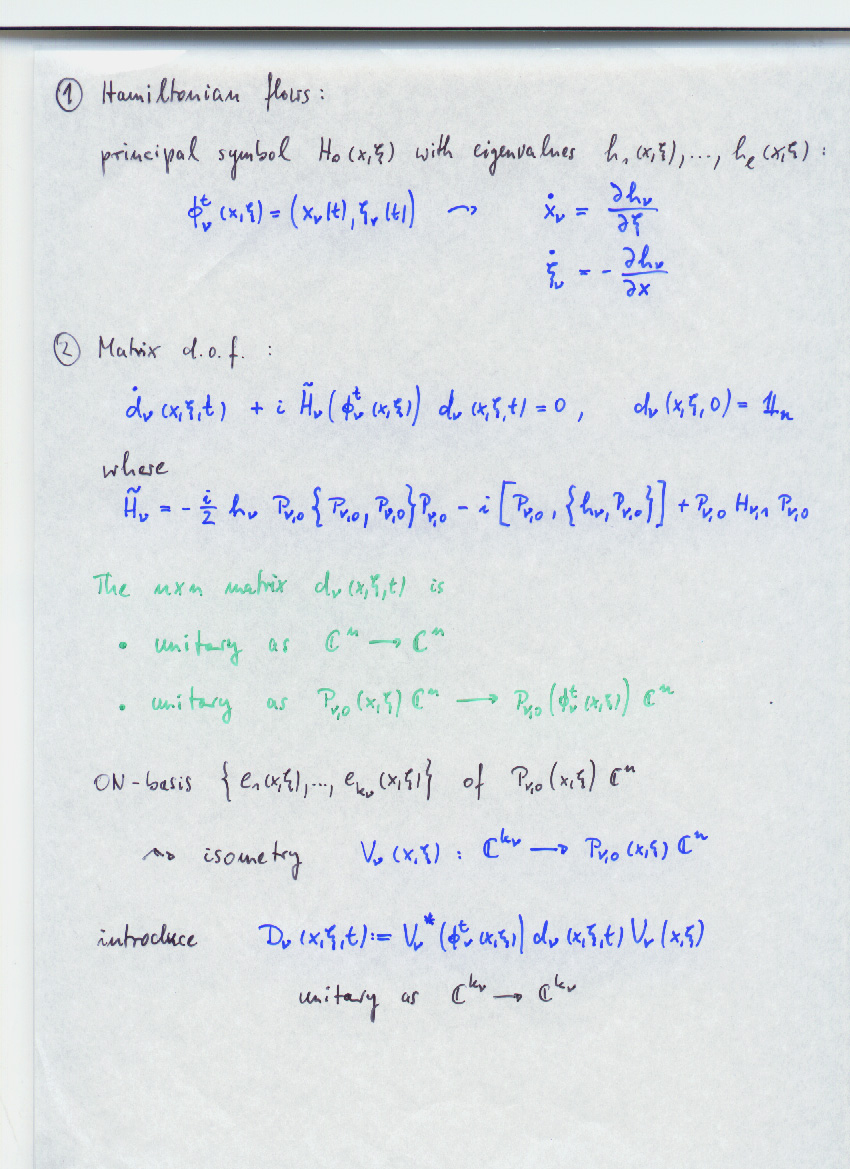 ① Hamiltonian flows:
principal symbol H₀(x,ξ) with eigenvalues h₁(x,ξ),..., hₑ(x,ξ):
ϕᵥᵗ(x,ξ) = (xᵥ(t), ξᵥ(t)) ⇝ ẋᵥ = ∂hᵥ/∂ξ
ξ̇ᵥ = - ∂hᵥ/∂x
② Matrix d.o.f.:
ḋᵥ(x,ξ,t) + i H̃ᵥ(ϕᵥᵗ(x,ξ)) dᵥ(x,ξ,t) = 0, dᵥ(x,ξ,0) = 𝟙ₙ
where
H̃ᵥ = - i/2 hᵥ Pᵥ,₀{Pᵥ,₀, Pᵥ,₀}Pᵥ,₀ - i[Pᵥ,₀, {hᵥ, Pᵥ,₀}] + Pᵥ,₀ Hᵥ,₁ Pᵥ,₀
The n×n matrix dᵥ(x,ξ,t) is
• unitary as ℂⁿ → ℂⁿ
• unitary as Pᵥ,₀(x,ξ) ℂⁿ → Pᵥ,₀(ϕᵥᵗ(x,ξ)) ℂⁿ
ON-basis {e₁(x,ξ),..., e_kᵥ(x,ξ)} of Pᵥ,₀(x,ξ) ℂⁿ
⇝ isometry Vᵥ(x,ξ) : ℂ^kᵥ → Pᵥ,₀(x,ξ) ℂⁿ
introduce Dᵥ(x,ξ,t) := Vᵥ*(ϕᵥᵗ(x,ξ)) dᵥ(x,ξ,t) Vᵥ(x,ξ)
unitary as ℂ^kᵥ → ℂ^kᵥ